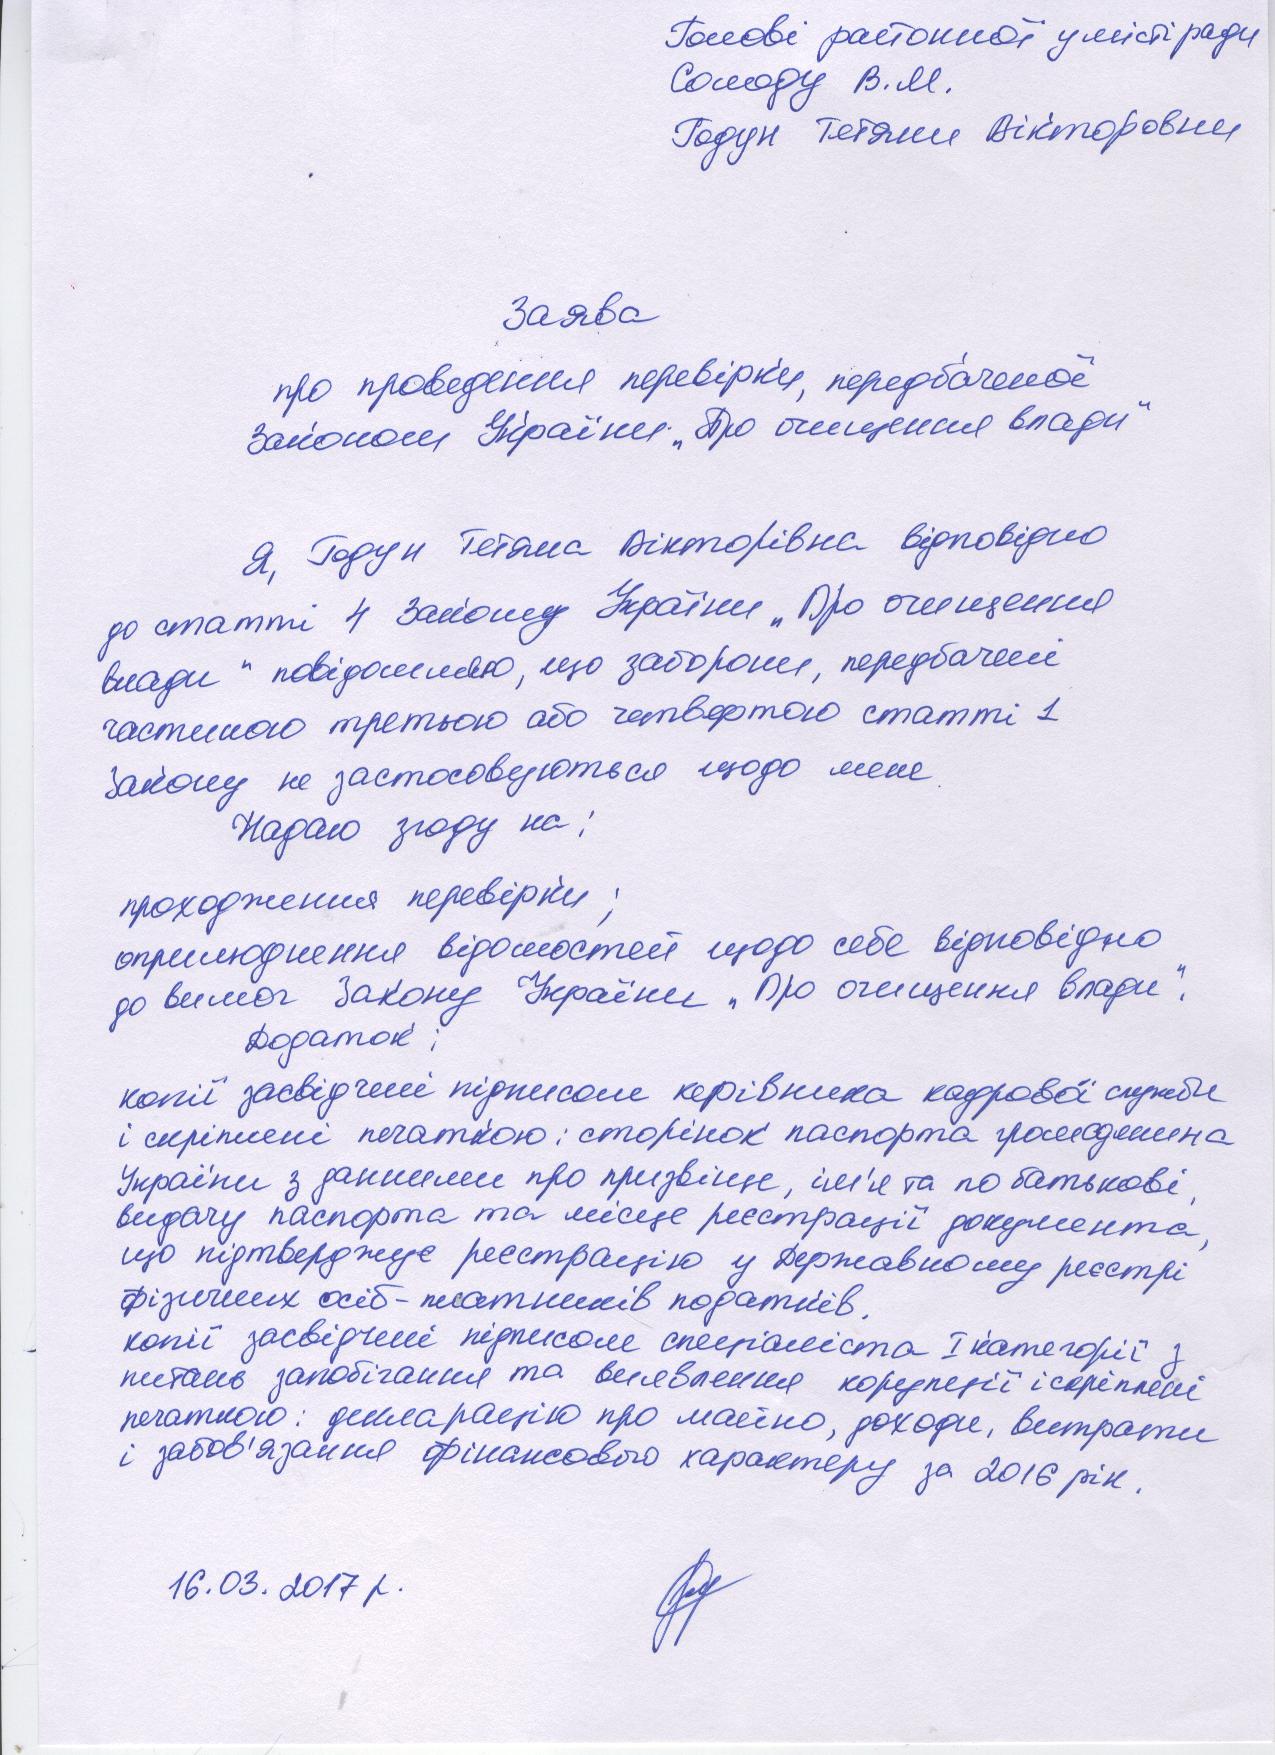 Голові районної у місті ради
Солоду В.М.
Годун Тетяни Вікторовни
Заява
про проведення перевірки, передбаченої
Законом України „Про очищення влади"
Я, Годун Тетяна Вікторівна відповідно
до статті 4 Закону України „Про очищення
влади" повідомляю, що заборони, передбачені
частиною третьою або четвертою статті 1
Закону не застосовуються щодо мене
Надаю згоду на:
проходження перевірки;
оприлюднення відомостей щодо себе відповідно
до вимог Закону України „Про очищення влади".
Додаток:
копії засвідчені підписом керівника кадрової служби
і скріплені печаткою: сторінок паспорта громадянина
України з данними про призвіще, ім'я та по батькові,
видачу паспорта та місце реєстрації документа,
що підтверджує реєстрацію у Державному реєстрі
фізичних осіб-платників податків.
копії засвідчені підписом спеціаліста I категорії з
питань запобігання та виявлення корупції і скріплені
печаткою: декларацію про майно, доходи, витрати
і забов'язання фінансового характеру за 2016 рік.
16.03.2017 р.